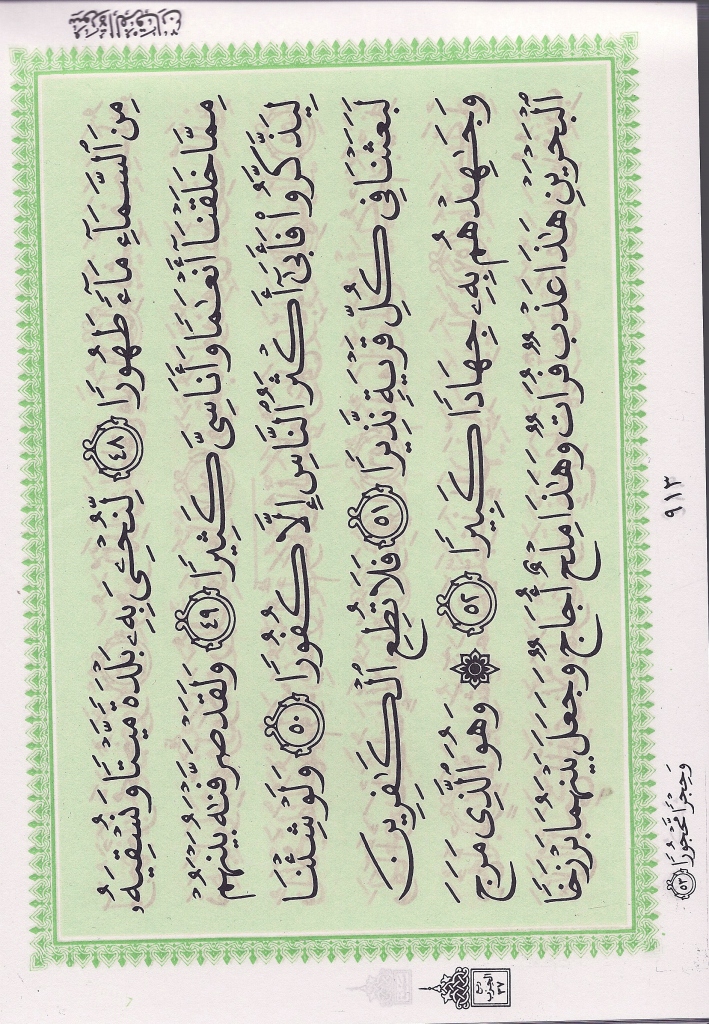 مِنَ ٱلسَّمَآءِ مَآءً طَهُورًا ٤٨ لِّنُحْـِۧىَ بِهِۦ بَلْدَةً مَّيْتًا وَنُسْقِيَهُۥ
مِمَّا خَلَقْنَآ أَنْعَٰمًا وَأَنَاسِىَّ كَثِيرًا ٤٩ وَلَقَدْ صَرَّفْنَٰهُ بَيْنَهُمْ
لِيَذَّكَّرُوا۟ فَأَبَىٰٓ أَكْثَرُ ٱلنَّاسِ إِلَّا كُفُورًا ٥٠ وَلَوْ شِئْنَا
لَبَعَثْنَا فِى كُلِّ قَرْيَةٍ نَّذِيرًا ٥١ فَلَا تُطِعِ ٱلْكَٰفِرِينَ
وَجَٰهِدْهُم بِهِۦ جِهَادًا كَبِيرًا ٥٢ ۞ وَهُوَ ٱلَّذِى مَرَجَ
ٱلْبَحْرَيْنِ هَٰذَا عَذْبٌ فُرَاتٌ وَهَٰذَا مِلْحٌ أُجَاجٌ وَجَعَلَ بَيْنَهُمَا بَرْزَخًا
وَحِجْرًا مَّحْجُورًا ٥٣
٩١٣
ربع
الحزب
٣٧